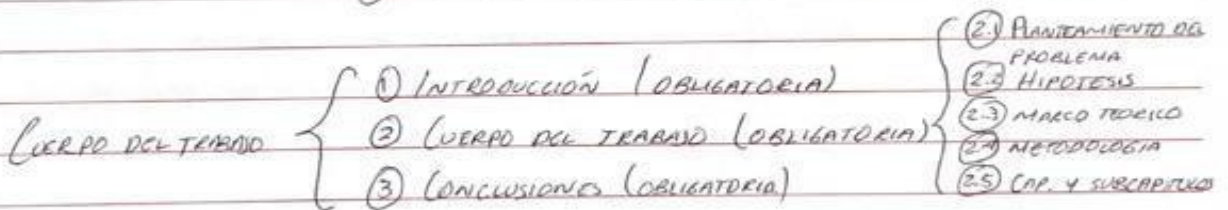 CUERPO DEL TRABAJO
① INTRODUCCIÓN (OBLIGATORIA)
② CUERPO DEL TRABAJO (OBLIGATORIA)
③ CONCLUSIONES (OBLIGATORIA)
2.1 PLANTEAMIENTO DEL
PROBLEMA
2.2 HIPOTESIS
2.3 MARCO TEORICO
2.4 METODOLOGIA
2.5 CAP. Y SUBCAPITULOS